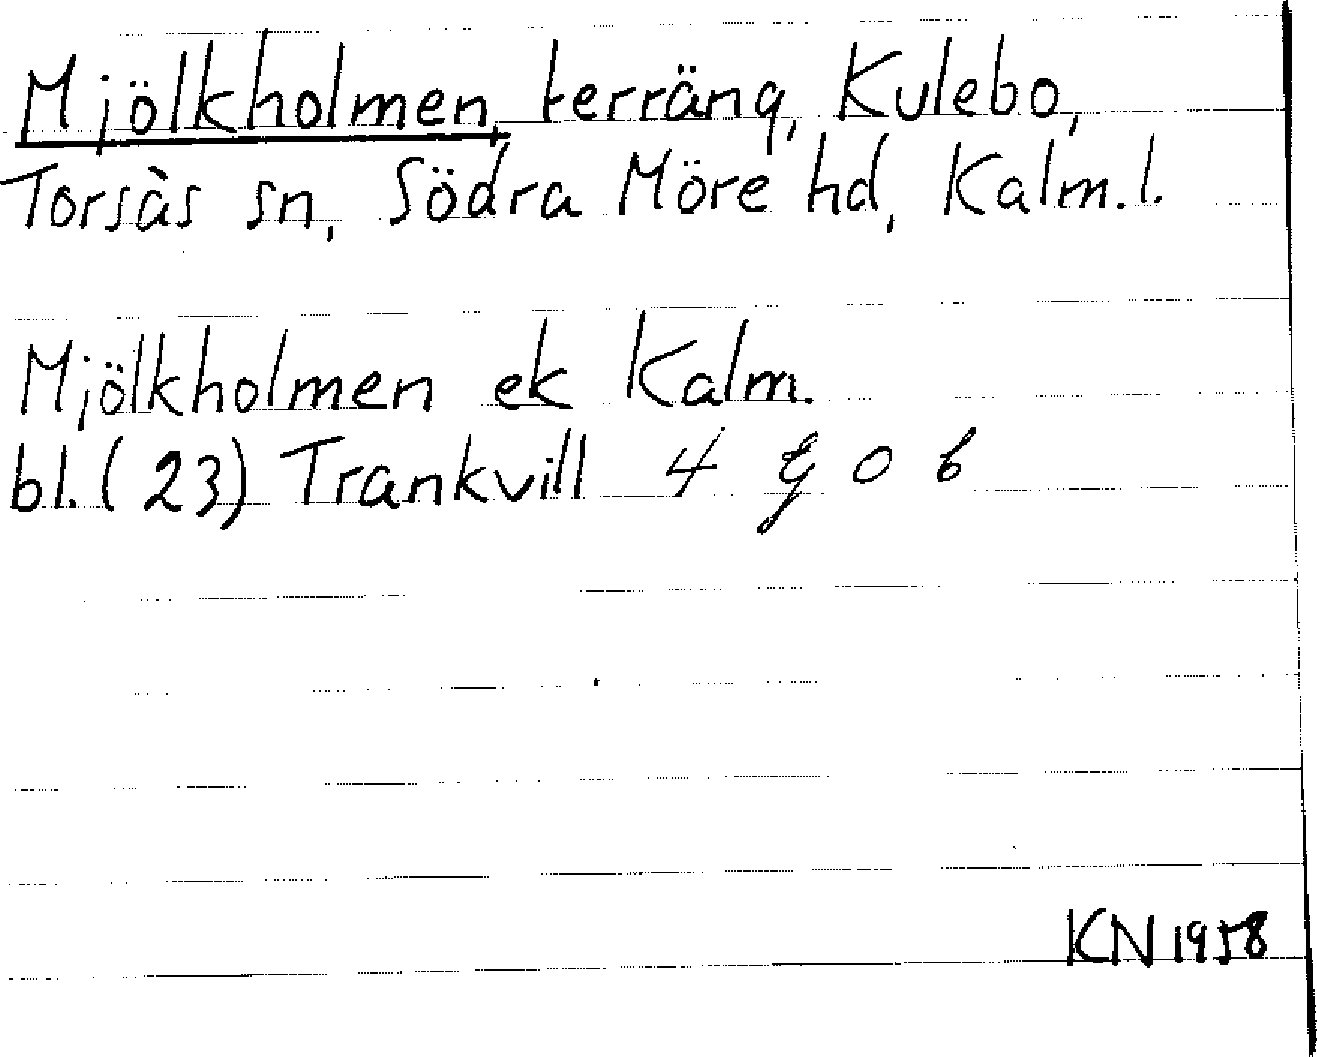 Mjölkholmen, terräng, Kulebo,
Torsås sn, Södra Möre hd, Kalm.l.
Mjölkholmen ek Kalm.
bl. (23) Trankvill 4 g o b
KN 1958